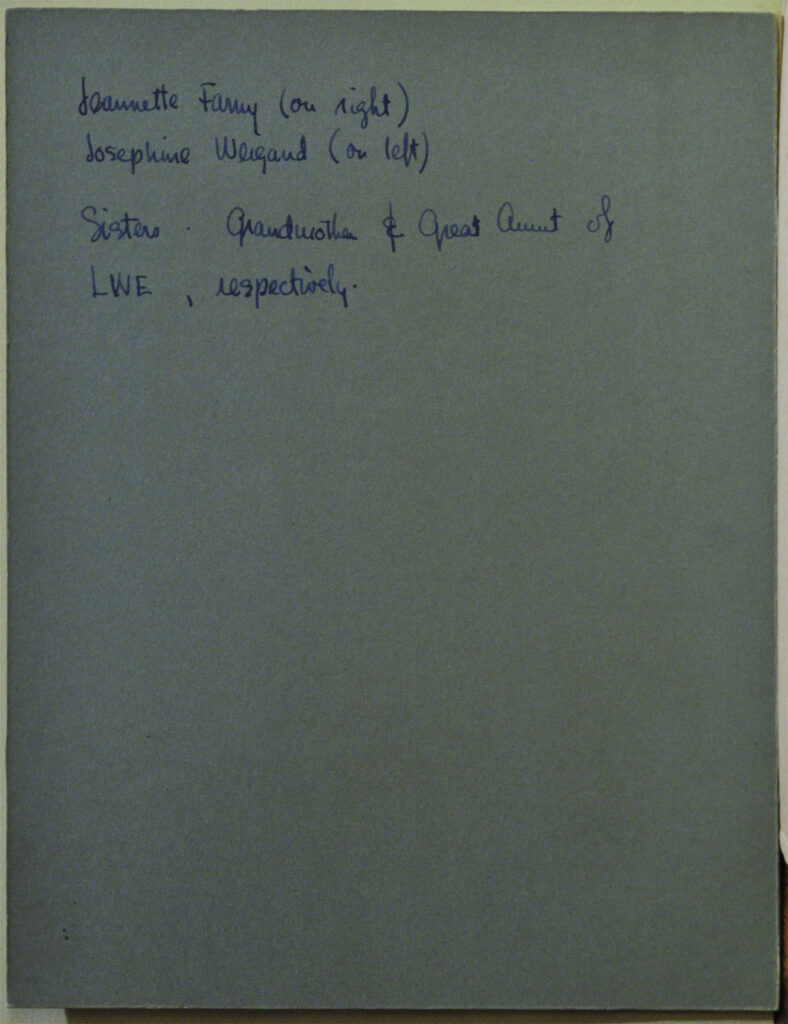 Jeannette Farny (on right)
Josephine Weigand (on left)
Sisters. Grandmother & Great Aunt of
LWE, respectively.